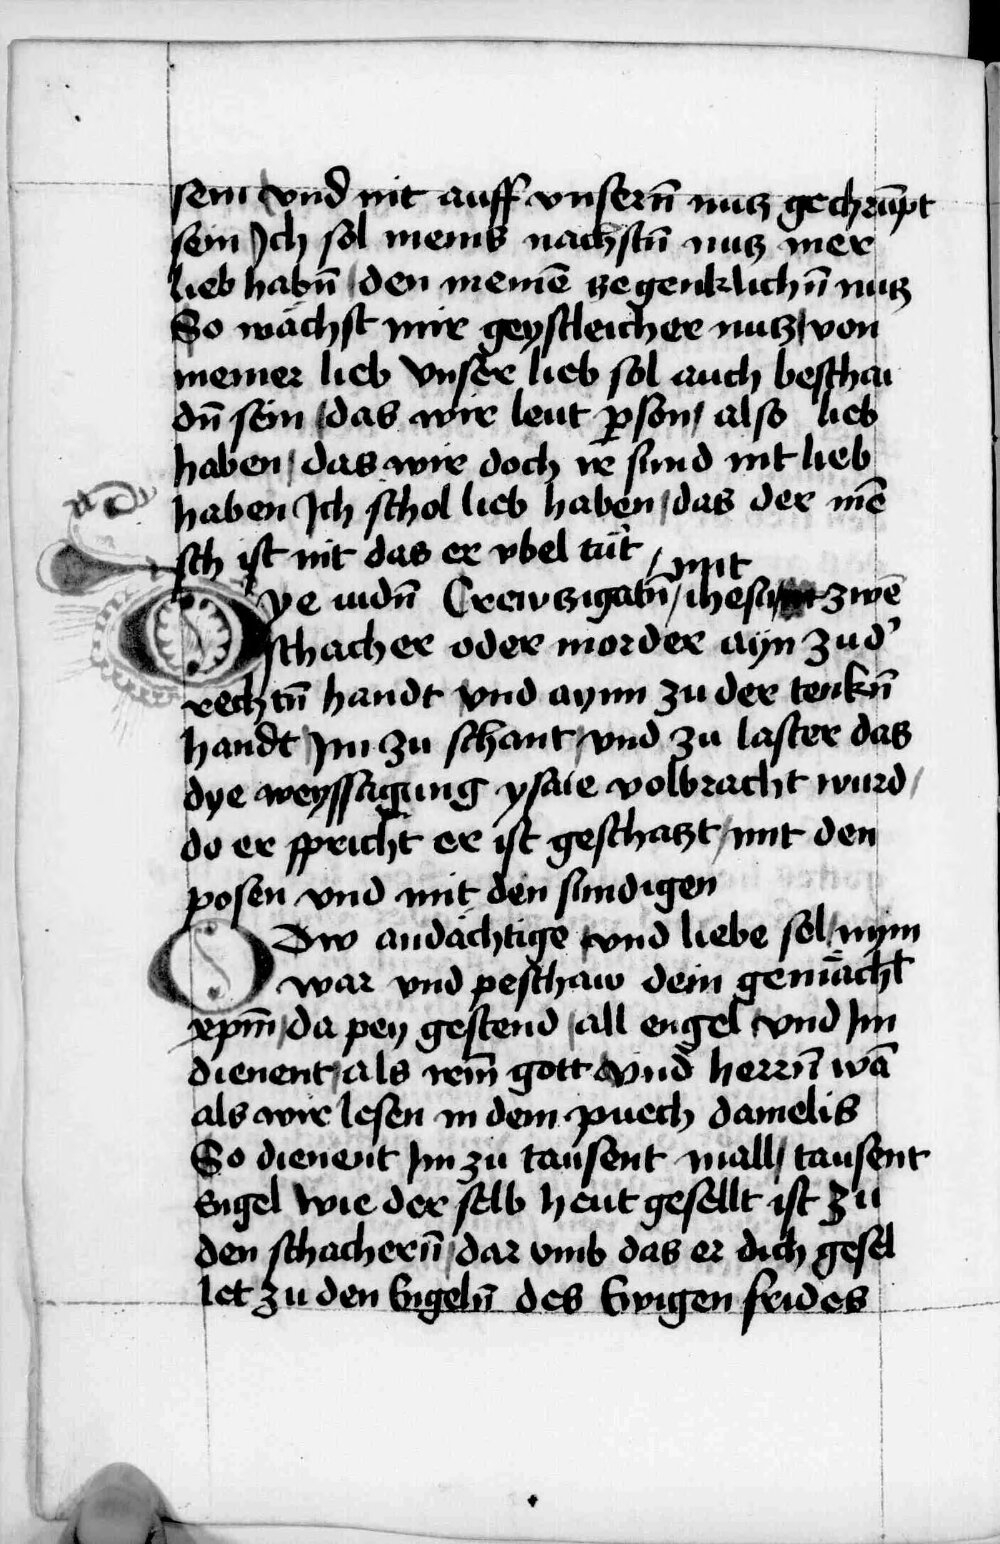 sein vnd nit auff vnsern̄ nutz gechrūpt
sein Ich sol meins nachstn̄ nutz mer
lieb habn̄ / den meinē zegenklichn̄ nutz
So wachst mir geystleicher nutz / von
meiner lieb Vnser lieb sol auch beschai
dn̄ sein / das wir leut ꝑson / also lieb
haben / das wir doch ir sund nit lieb
haben Ich schol lieb haben / das der mē
sch ist nit das er vbel tut
Dye iudn̄ Crewtzigatn̄ / ihesu / mit zwē
schacher oder morder ayn zu d'
rechtn̄ handt vnd aynn zu der tenkn̄
handt Im zu schant / vnd zu laster das
dye weyssagung ysaie volbracht wurd /
do er spricht er ist geschatzt / mit den
posen vnd mit den sundigen
O Dw andachtige vnd liebe sel / nym
war vnd peschaw dein gemāchl
xpm̄ / da pey gestend / all engel vnd Im
dienent / als irm̄ gott vnd herrn̄ wā
als wir lesen in dem puech danielis
So dienent Im zu tausent mall / tausent
Engel wie der selb heut gesellt ist zu
den schachern̄ / dar vmb das er dich gesel
let zu den Engeln̄ des Ewigen frides